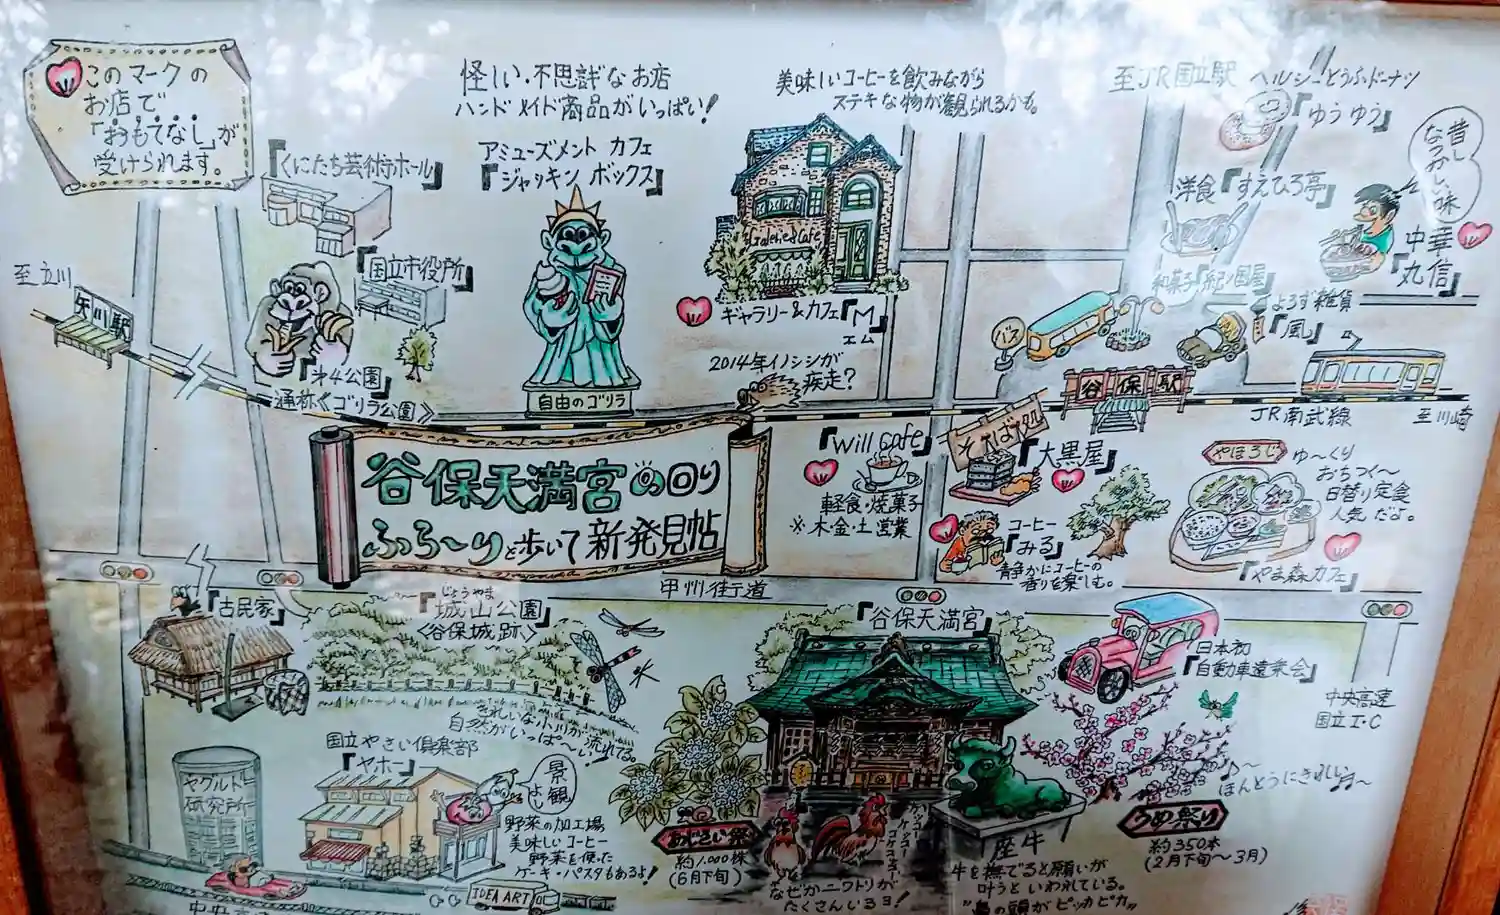 このマークの
お店で
「おもてなし」が
受けられます。
怪しい・不思議なお店
ハンドメイド商品がいっぱい！
アミューズメント カフェ
『ジャッキン ボックス』
美味しいコーヒーを飲みながら
ステキな物が観られるかも。
至JR国立駅
ヘルシーとうふドーナツ
『ゆうゆう』
昔し
なつかしい味
『くにたち芸術ホール』
『国立市役所』
洋食『すえひろ亭』
中華
『丸信』
至立川
矢川駅
和菓子『紀ノ国屋』
よろず雑貨
『風』
バス
Galerie&Cafe
ギャラリー&カフェ『M』
エム
『第4公園』
通称《ゴリラ公園》
自由のゴリラ
2014年イノシシが
疾走?
谷保駅
JR南武線
至川崎
谷保天満宮の回り
ふら〜りと歩いて新発見帖
『will cafe』
軽食・焼菓子
※木・金・土営業
そば処
『大黒屋』
コーヒー
『みる』
静かにコーヒーの
香りを楽しむ。
やほろじ
ゆ〜くり
おちつく〜
日替り定食
人気だよ。
『やま森カフェ』
甲州街道
『古民家』
じょうやま
『城山公園』
<谷保城跡>
きれいな小川が流れてる。
自然がいっぱ〜い
『谷保天満宮』
日本初
『自動車遠乗会』
中央高速
国立I・C
ヤクルト
研究所
国立やさい倶楽部
『ヤホー』
景観
よし
野菜の加工場
美味しいコーヒー
野菜を使った
ケーキ・パスタもあるよ！
IDEA ART
あじさい祭
約1,000株
(6月下旬)
なぜかニワトリが
たくさんいるヨ！
座牛
牛を撫でると願いが
叶うといわれている。
"鼻の頭がピッカピカ"
ほんとうにきれい
うめ祭り
約350本
(2月下旬〜3月)